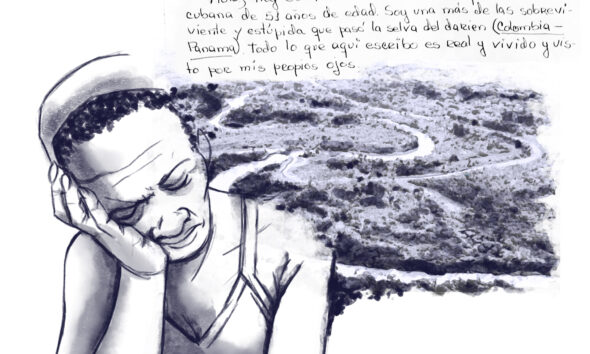 cubana de 53 años de edad. Soy una más de las sobrevi-
viente y estúpida que pasó la selva del darien (Colombia-
Panamá). Todo lo que aqui escribo es real y vivido y vis-
to por mis propios ojos.